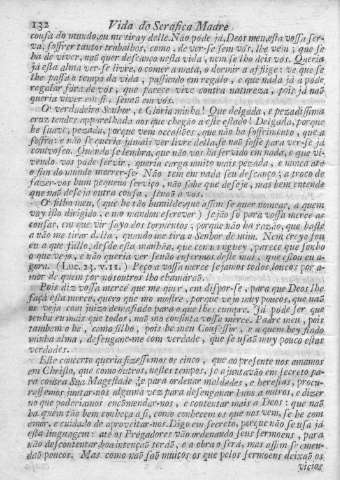 132 Vida do Serafica Madre
cousa do mundo, ou me tiray delle. Não póde já, Deos meu, esta vossa ser-
va, soffrer tantos trabalhos, como, de ver-se sem vós, lhe vem; que se
ha de viver, naõ quer descanço nesta vida, nem se lho deis vós. Queria
já esta alma ver-se livre, o comer a mata, o dormir a afflige: ve que se
lhe passa o tempo da vida, passando em regalo, e que nada já a póde
regular fóra de vós, que parece vive contra natureza, pois já naõ
queria viver em si, senaõ em vós.
O' verdadeiro Senhor, e Gloria minha! Que delgada, e pezadissima
cruz tendes apparelhada aos que chegaõ a este estado! Delgada, porque
he suave, pezada, porque vem occasiões, que naõ ha soffrimento, que a
soffra: e naõ se queria jámais ver livre della se naõ fosse para ver-se já
comvosco. Quando se lembra, que naõ vos ha servido em nada, e que vi-
vendo vos póde servir, queria carga muito mais pezada, e nunca até
o fim do mundo morrer-se. Naõ tem em nada seu descanço; a troco de
fazer-vos hum pequeno serviço, naõ sabe que deseje, mas bem entende
que naõ deseja outra cousa, senaõ a vós.
O' filho meu, (que he taõ humilde que assim se quer nomear, a quem
vay isto dirigido, e mo mandou escrever) sejaõ só para vossa merce as
cousas, em que vir sayo dos termos; porque naõ ha razaõ, que baste
a naõ me tirar della, quando me tira o Senhor de mim. Nem creyo sou
eu a que fallo, desde esta manhãa, que communguey; parece que sonho
o que vejo, e naõ queria ver senaõ enfermos deste mal, que estou eu a-
gora. Peço a vossa merce sejamos todos loucos por a-
mor de quem por nós outros lho chamáraõ.
Pois diz vossa merce que me quer, em dispor-se, para que Deos lhe
faça esta merce, quero que mo mostre, porque vejo muy poucos, que naõ
os veja com juizo demasiado para o que lhes cumpre. Já póde ser que
tenha eu mais que todos, naõ mo consinta vossa merce. Padre meu, pois
tambem o he, como filho, pois he meu Confessor, e a quem hey fiado
minha alma, desengane-me com verdade, que se usaõ muy pouco estas
verdades.
Este concerto queria fizessemos os cinco, que ao presente nos amamos
em Christo, que como outros, nestes tempos, se ajuntavaõ em secreto pa-
ra contra Sua Magestade, e para ordenar maldades, e heresias, procu-
rassemos juntar-nos alguma vez para desenganar huns a outros, e dizer
no que poderiamos emendar-nos, e contentar mais a Deos: que naõ
ha quem taõ bem conheça a si, como conhecem os que nos vem, se he com
amor, e cuidado de aproveitar-nos. Digo em secreto, porque naõ se usa já
esta linguagem: até os Prègadores vão ordenando seus sermoens, para
naõ descontentar: boa intençaõ teráõ, e a obra o será, mas assim se emen-
daõ poucos. Mas como naõ saõ muitos os que pelos sermoens deixaõ os
vicios